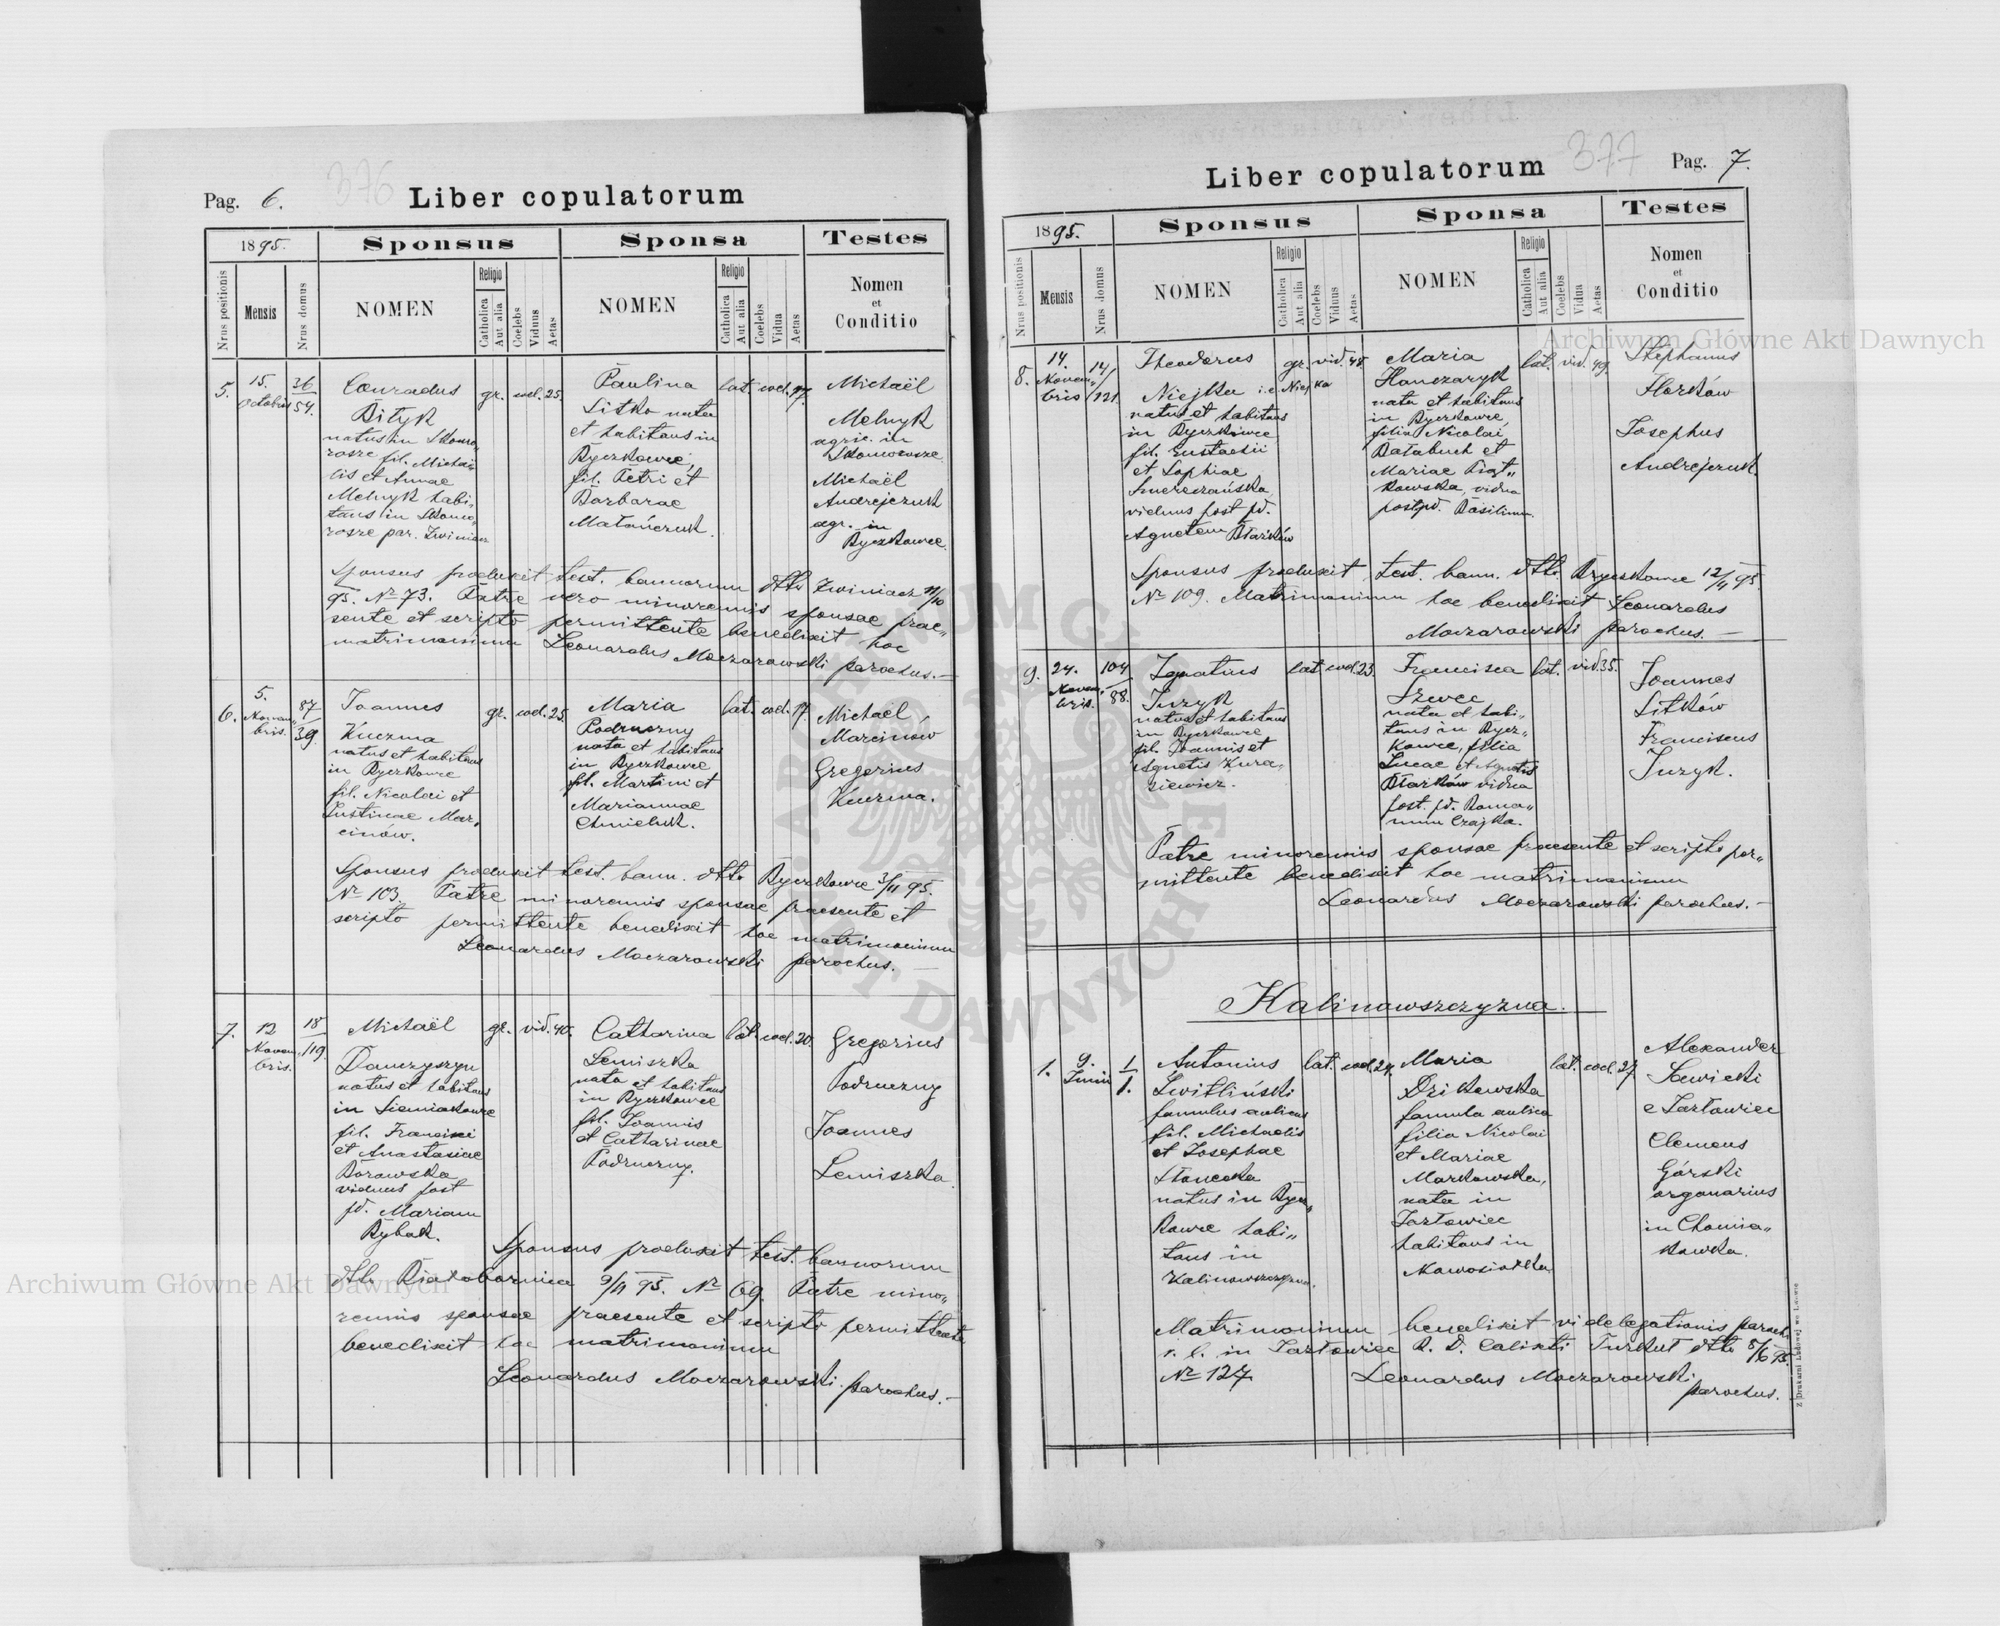 376
Pag. 6.
Liber copulatorum
1895.
Sponsus
Sponsa
Testes
Nrus positionis
Mensis
Nrus domus
NOMEN
Religio
Catholica
Aut alia
Coelebs
Viduus
Aetas
NOMEN
Religio
Catholica
Aut alia
Coelebs
Vidua
Aetas
Nomen
et
Conditio
5.
15.
Octobris
36
54.
Conradus
Bityk
natus in Skomo„
rosze fil. Michae„
lis et Annae
Melnyk habi„
tans in Skomo„
rosze par. Zwiniacz
gr.
coel.
25.
Paulina
Litko nata
et habitans in
Byczkowce,
fil. Petri et
Barbarae
Matańczuk.
lat.
coel.
17.
Michaël
Melnyk
agric. in
Skomorosze
Michaël
Andrejczuk
agr. in
Byczkowce.
Sponsus produxit test. bannorum dtto Zwiniacz 11/10
95. No 73. Patre vero minorennis sponsae prae„
sente et scripto permittente benedixit hoc
matrimonium Leonardus Moczarowski parochus.—
6.
5.
Novem„
bris.
87
39.
Joannes
Kuczma
natus et habitans
in Byczkowce
fil. Nicolai et
Justinae Mar„
cinów.
gr.
coel.
25.
Maria
Podruczny
nata et habitans
in Byczkowce
fil. Martini et
Mariannae
Chmieluk.
lat.
coel.
17.
Michaël
Marcinów
Gregorius
Kuczma.
Sponsus produxit test. bann. dtto Byczkowce 3/11 95.
No 103. Patre minorennis sponsae praesente et
scripto permittente benedixit hoc matrimonium
Leonardus Moczarowski parochus.—
7.
12
Novem„
bris.
18
119.
Michaël
Danczyszyn
natus et habitans
in Siemiakowce
fil. Francisci
et Anastasiae
Borawska
viduus post
pd. Mariam
Rybak.
gr.
vid.
40.
Catharina
Lemiszka
nata et habitans
in Byczkowce
fil. Joannis
et Catharinae
Podruczny.
lat.
coel.
20.
Gregorius
Podruczny
Joannes
Lemiszka.
Sponsus produxit test. bannorum
dtto Białobożnica 9/11 95. No 69. Patre mino„
rennis sponsae praesente et scripto permittente
benedixit hoc matrimonium
Leonardus Moczarowski parochus.—
377
Liber copulatorum
Pag. 7.
1895.
Sponsus
Sponsa
Testes
Nrus positionis
Mensis
Nrus domus
NOMEN
Religio
Catholica
Aut alia
Coelebs
Viduus
Aetas
NOMEN
Religio
Catholica
Aut alia
Coelebs
Vidua
Aetas
Nomen
et
Conditio
8.
14.
Novem„
bris
14/
121.
Theodorus
Niejka i.e. Niejko
natus et habitans
in Byczkowce
fil. Eustachii
et Sophiae
Smereczańska,
viduus post pd.
Agnetem Błażków
gr.
vid.
48.
Maria
Hanczaryk
nata et habitans
in Byczkowce,
filia Nicolai
Bałabuch et
Mariae Piąt„
kowska, vidua
post pd. Basilium.
lat.
vid.
49.
Stephanus
Horków
Josephus
Andrejczuk.
Sponsus produxit test. bann. dtto Byczkowce 12/11 95
No 109. Matrimonium hoc benedixit Leonardus
Moczarowski parochus.—
9.
24.
Novem„
bris.
104
88.
Ignatius
Juzyk
natus et habitans
in Byczkowce
fil. Joannis et
Agnetis Kura„
siewicz.
lat.
coel.
23.
Francisca
Szewec
nata et habi„
tans in Bycz„
kowce, filia
Lucae et Agnetis
Błażków vidua
post. pd. Roma„
num Czajka.
lat.
vid.
35.
Joannes
Litków
Franciscus
Juzyk.
Patre minorennis sponsae praesente et scripto per„
mittente benedixit hoc matrimonium
Leonardus Moczarowski parochus.—
Kalinowszczyzna.
1.
9.
Junii
1
1.
Antonius
Świtliński
famulus aulicus
fil. Michaelis
et Josephae
Słonecka
natus in Bycz„
kowce habi„
tans in
Kalinowszczyzna.
lat.
coel.
24.
Maria
Dzikowska
famula aulica
filia Nicolai
et Mariae
Markowska,
nata in
Jazłowiec
habitans in
Nowosiołka.
lat.
coel.
27.
Alexander
Sawicki
e Jazłowiec
Clemens
Górski
organarius
in Chomia„
kówka.
Matrimonium benedixit vi delegationis parochi
r. l. in Jazłowiec R. D. Calixti Turkut dtto 8/6 95.
No 127
Leonardus Moczarowski
parochus.
Z Drukarni Ludowej we Lwowie
Archiwum Główne Akt Dawnych
Archiwum Główne Akt Dawnych
ARCHIWUM GŁÓWNE AKT DAWNYCH